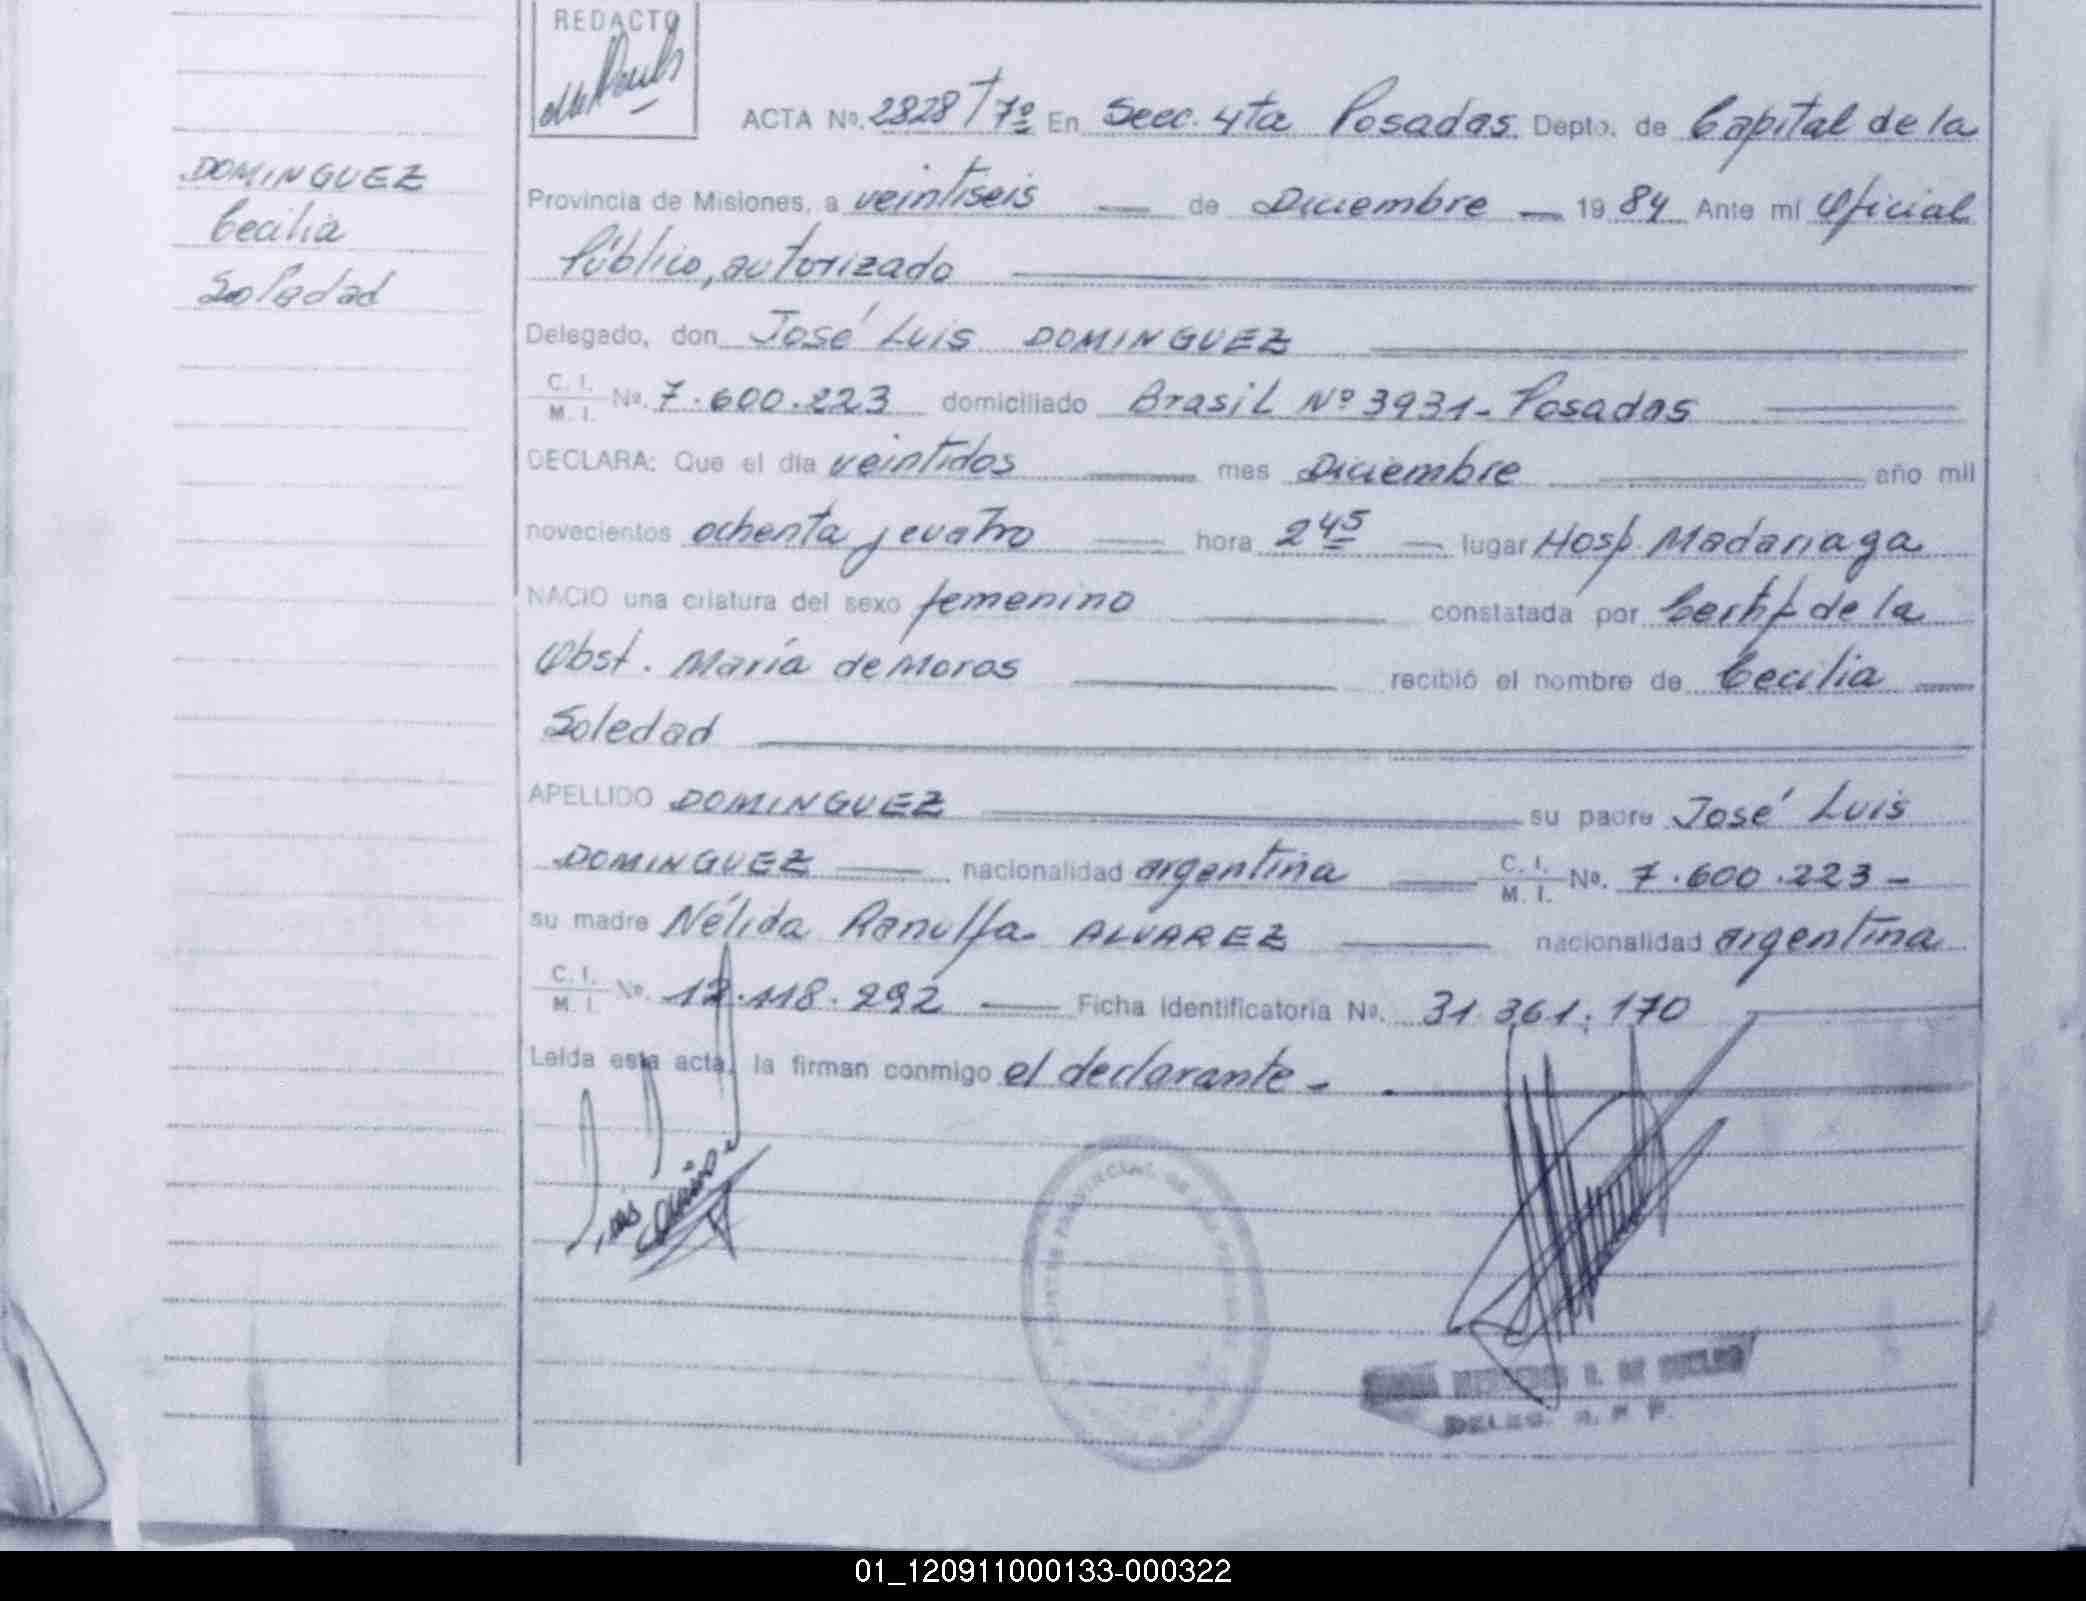 REDACTO
ACTA Nº. 2828 / Tº 7º En Secc. 4ta Posadas Depto. de Capital de la
DOMINGUEZ
Cecilia
Soledad
Provincia de Misiones, a veintiseis — de Diciembre — 19 84 Ante mí Oficial
Público, autorizado
Delegado, don José Luis DOMINGUEZ
C. I. / M. I. Nº. 7.600.223 domiciliado Brasil Nº 3931 - Posadas
DECLARA: Que el día veintidos — mes Diciembre — año mil
novecientos ochenta y cuatro — hora 2 45 — lugar Hosp. Madariaga
NACIO una criatura del sexo femenino — constatada por Certif. de la
Obst. María de Moros — recibió el nombre de Cecilia —
Soledad
APELLIDO DOMINGUEZ — su padre José Luis
DOMINGUEZ — nacionalidad argentina — C. I. / M. I. Nº. 7.600.223 -
su madre Nélida Ranulfa ALVAREZ — nacionalidad argentina
C. I. / M. I. Nº. 12.118.292 — Ficha identificatoria Nº. 31.361.170
Leída esta acta, la firman conmigo el declarante -
DELEG. R. P. P.
01_120911000133-000322